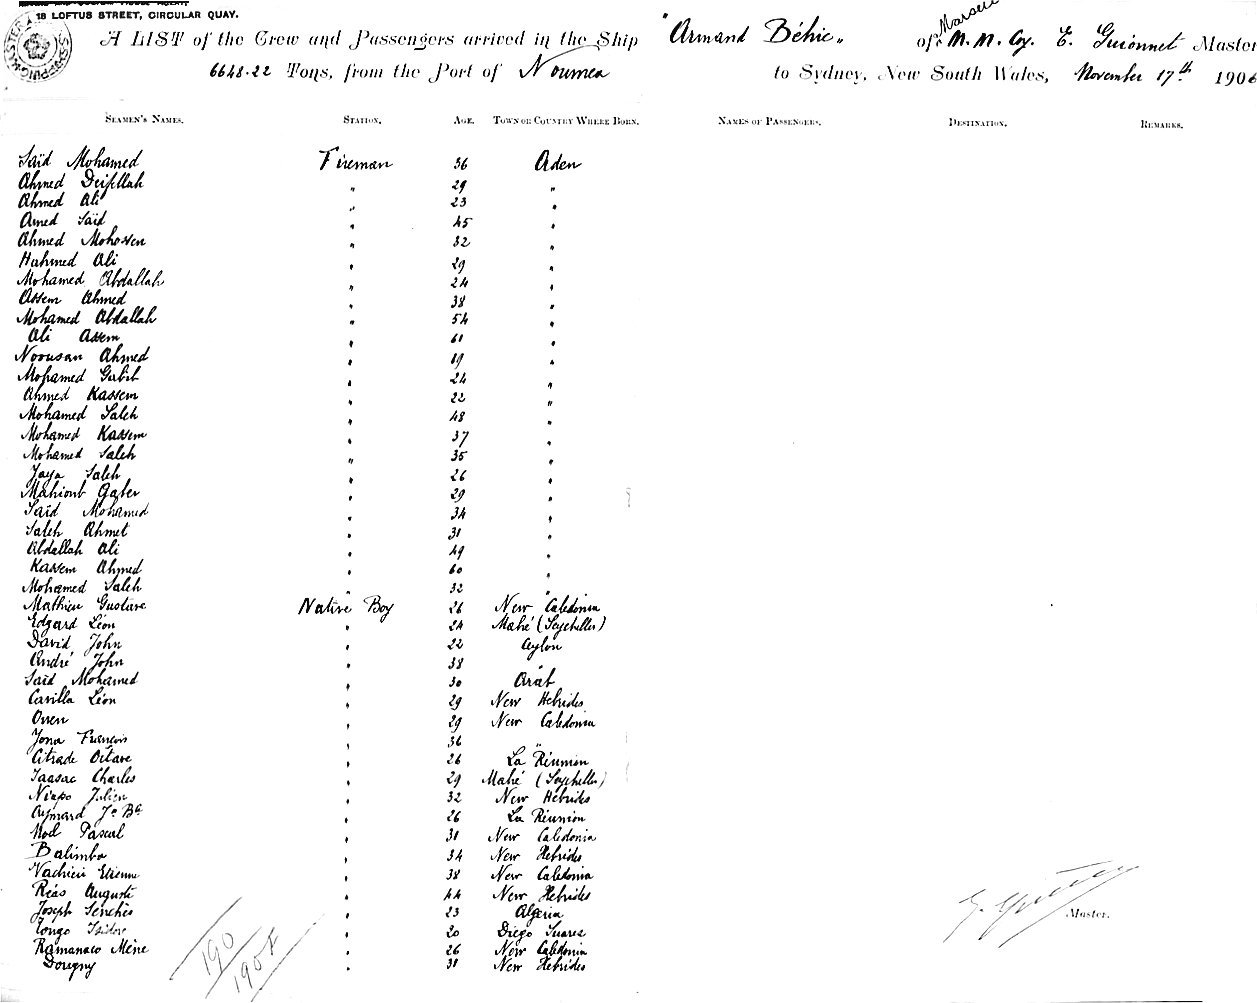 18 LOFTUS STREET, CIRCULAR QUAY.
A LIST of the Crew and Passengers arrived in the Ship "Armand Béhic" of Marseille M.M. Coy. E. Guionnet Master
6648.22 Tons, from the Port of Noumea to Sydney, New South Wales, November 17th 1906
SEAMEN'S NAMES. STATION. AGE. TOWN OR COUNTRY WHERE BORN. NAMES OF PASSENGERS. DESTINATION. REMARKS.
Saïd Mohamed Fireman 36 Aden
Ahmed Deifellah " 29 "
Ahmed Ali " 23 "
Amed Saïd " 45 "
Ahmed Mohossen " 32 "
Hahmed Ali " 29 "
Mohamed Abdallah " 24 "
Assem Ahmed " 38 "
Mohamed Abdallah " 54 "
Ali Assem " 61 "
Noousan Ahmed " 19 "
Mohamed " 24 "
Ahmed Kassem " 22 "
Mohamed Saleh " 48 "
Mohamed Kassem " 37 "
Mohamed Saleh " 35 "
Jaya Saleh " 26 "
Mahiont Gater " 29 "
Saïd Mohamed " 34 "
Saleh Ahmet " 31 "
Abdallah Ali " 49 "
Kassem Ahmed " 60 "
Mohamed Saleh " 32 "
Mathieu Gustave Native Boy 26 New Caledonia
Edgard Léon " 24 Mahé (Seychelles)
David John " 22 Ceylon
André John " 38 "
Saïd Mohamed " 30 Arab
Cavilla Léon " 29 New Hebrides
Owen " 29 New Caledonia
Jona François " 36 "
Citrade Octave " 26 La Réunion
Isaasac Charles " 29 Mahé (Seychelles)
Niapo Julien " 32 New Hebrides
Aymard Jn Bte " 26 La Réunion
Noël Pascal " 31 New Caledonia
Balimba " 34 New Hebrides
Vachieri Etienne " 38 New Caledonia
Réas Auguste " 44 New Hebrides
Joseph Senchès " 23 Algeria
Tongo Isidore " 20 Diego Suarez
Ramanaco Mène " 26 New Caledonia
Dougny " 31 New Hebrides
190
1908
Master.